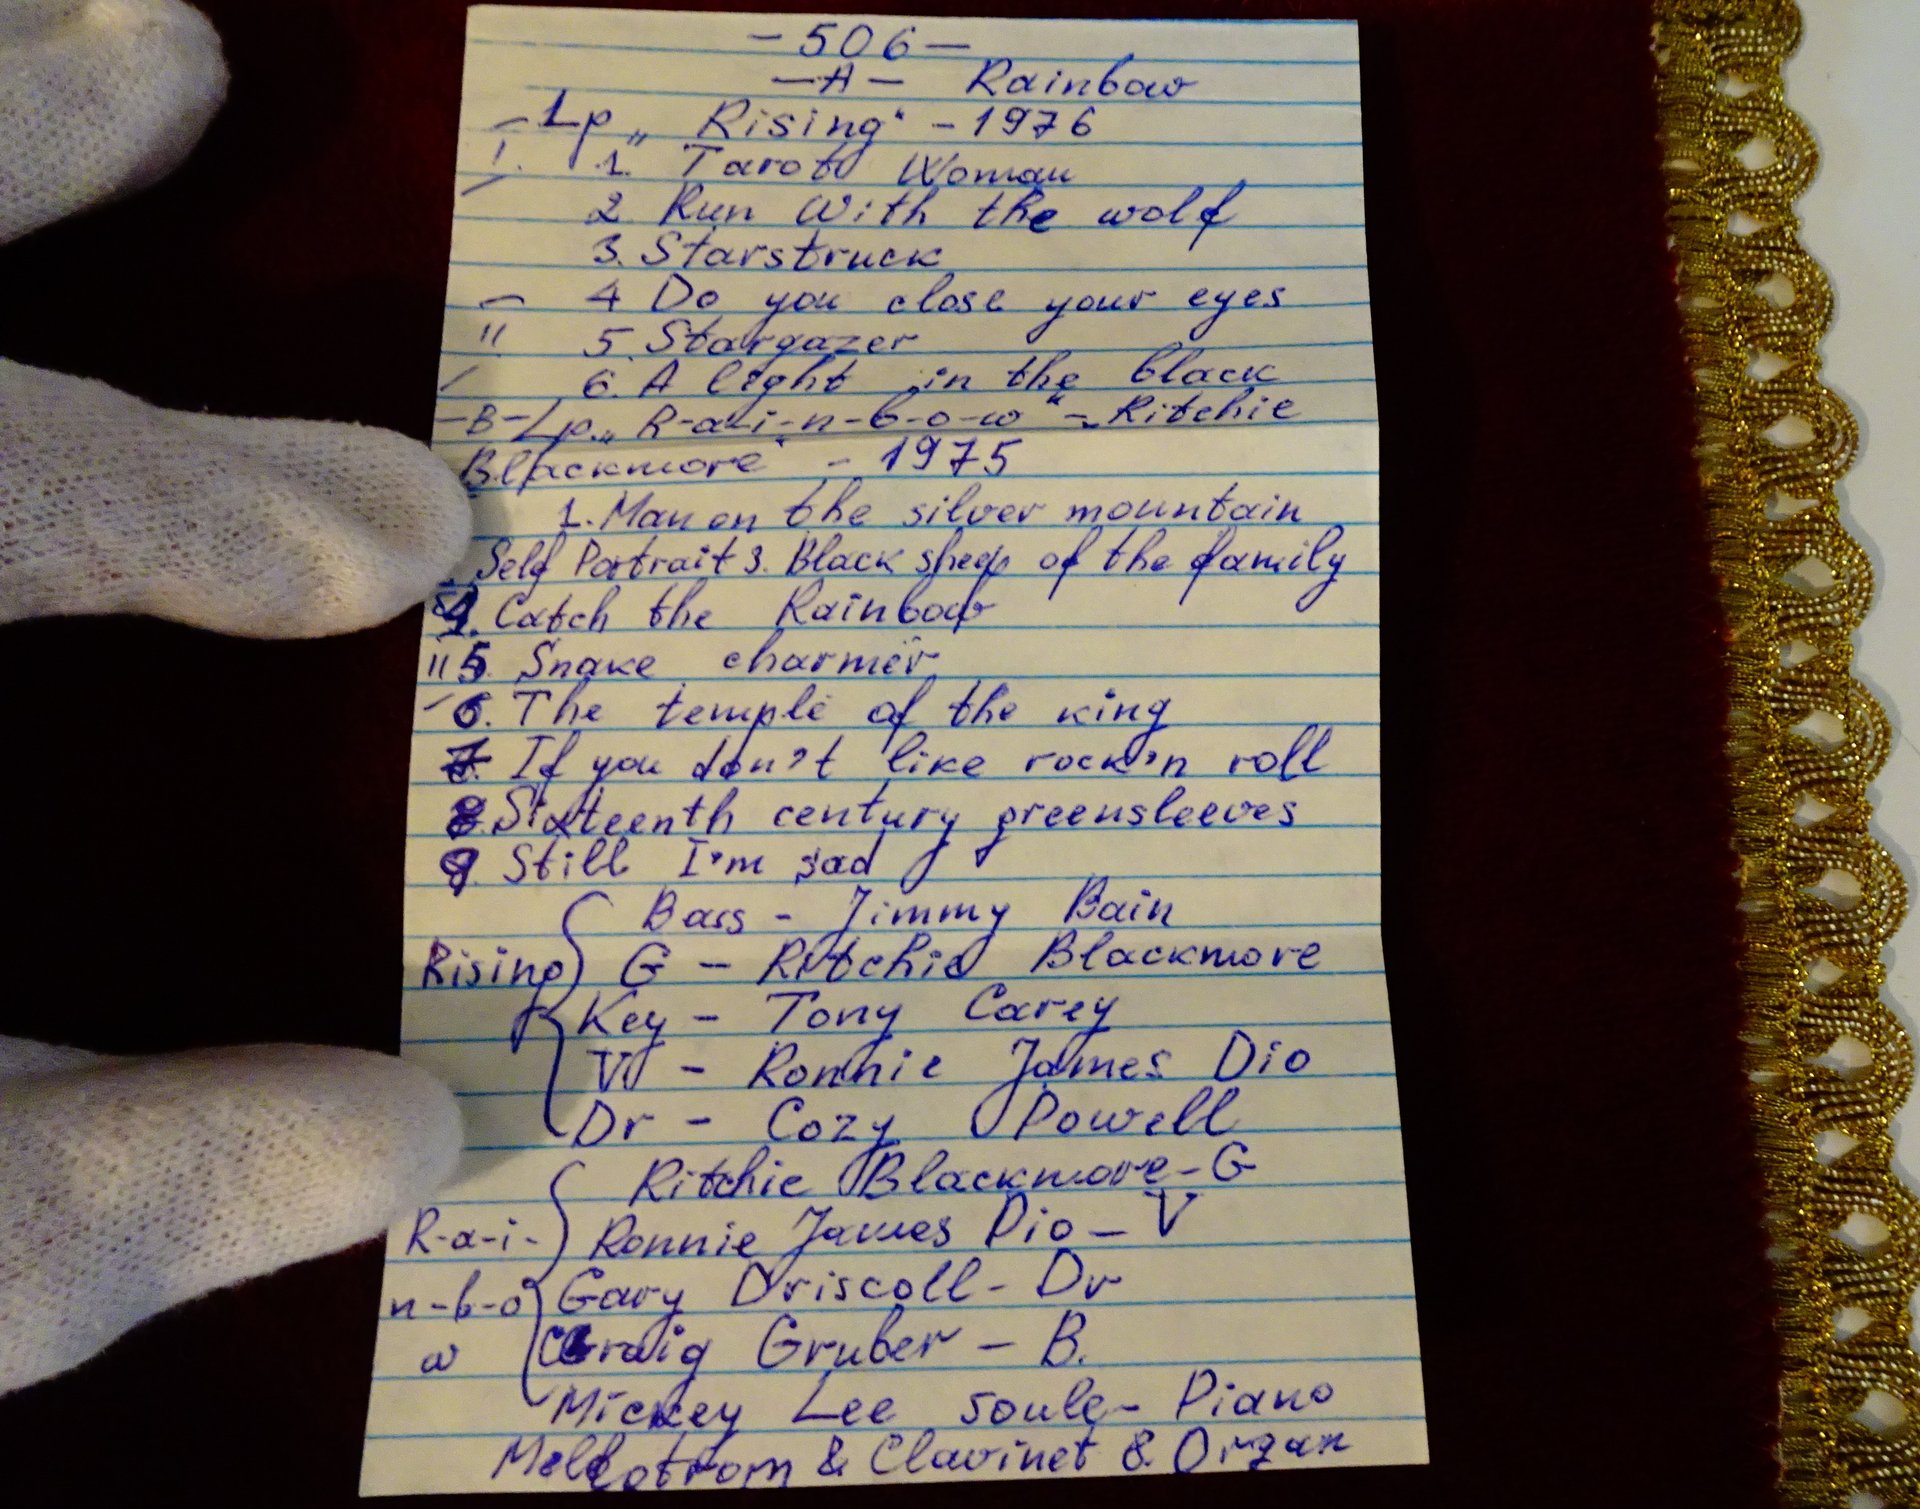 – 506 –
– A – Rainbow
– Lp „ Rising“ – 1976
I. 1. Tarot Woman
2 Run With the wolf
3. Starstruck
4 Do you close your eyes
" 5. Stargazer
6. A light in the black
– B – Lp „ R-a-i-n-b-o-w“ – „Ritchie
Blackmore“ – 1975
1. Man on the silver mountain
Self Portrait 3. Black sheep of the family
4. Catch the Rainbow
" 5. Snake charmer
6. The temple of the king
7. If you don't like rock'n roll
8. Sixteenth century greensleeves
9. Still I'm sad
Bass – Jimmy Bain
Rising G – Ritchie Blackmore
Key – Tony Carey
V – Ronnie James Dio
Dr – Cozy Powell
Ritchie Blackmore – G
R-a-i- Ronnie James Dio – V
n-b-o Gary Driscoll – Dr
w Craig Gruber – B.
Mickey Lee Soule – Piano
Mellotrom & Clavinet & Organ